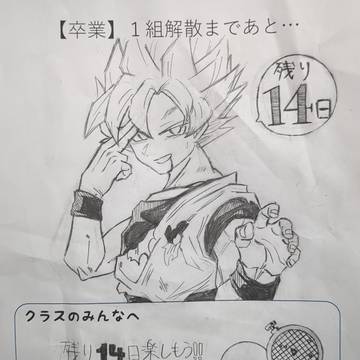 【卒業】１組解散まであと…
残り
14日
クラスのみんなへ
残り14日楽しもう!!